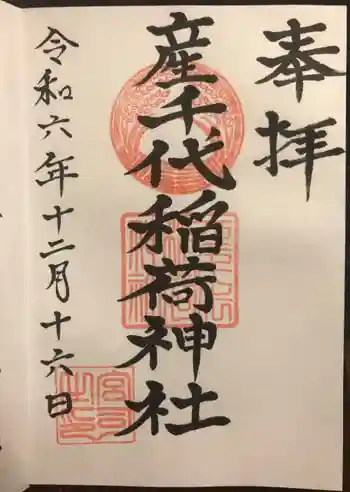 奉拝
産千代稲荷神社
令和六年十二月十六日
宮司之印